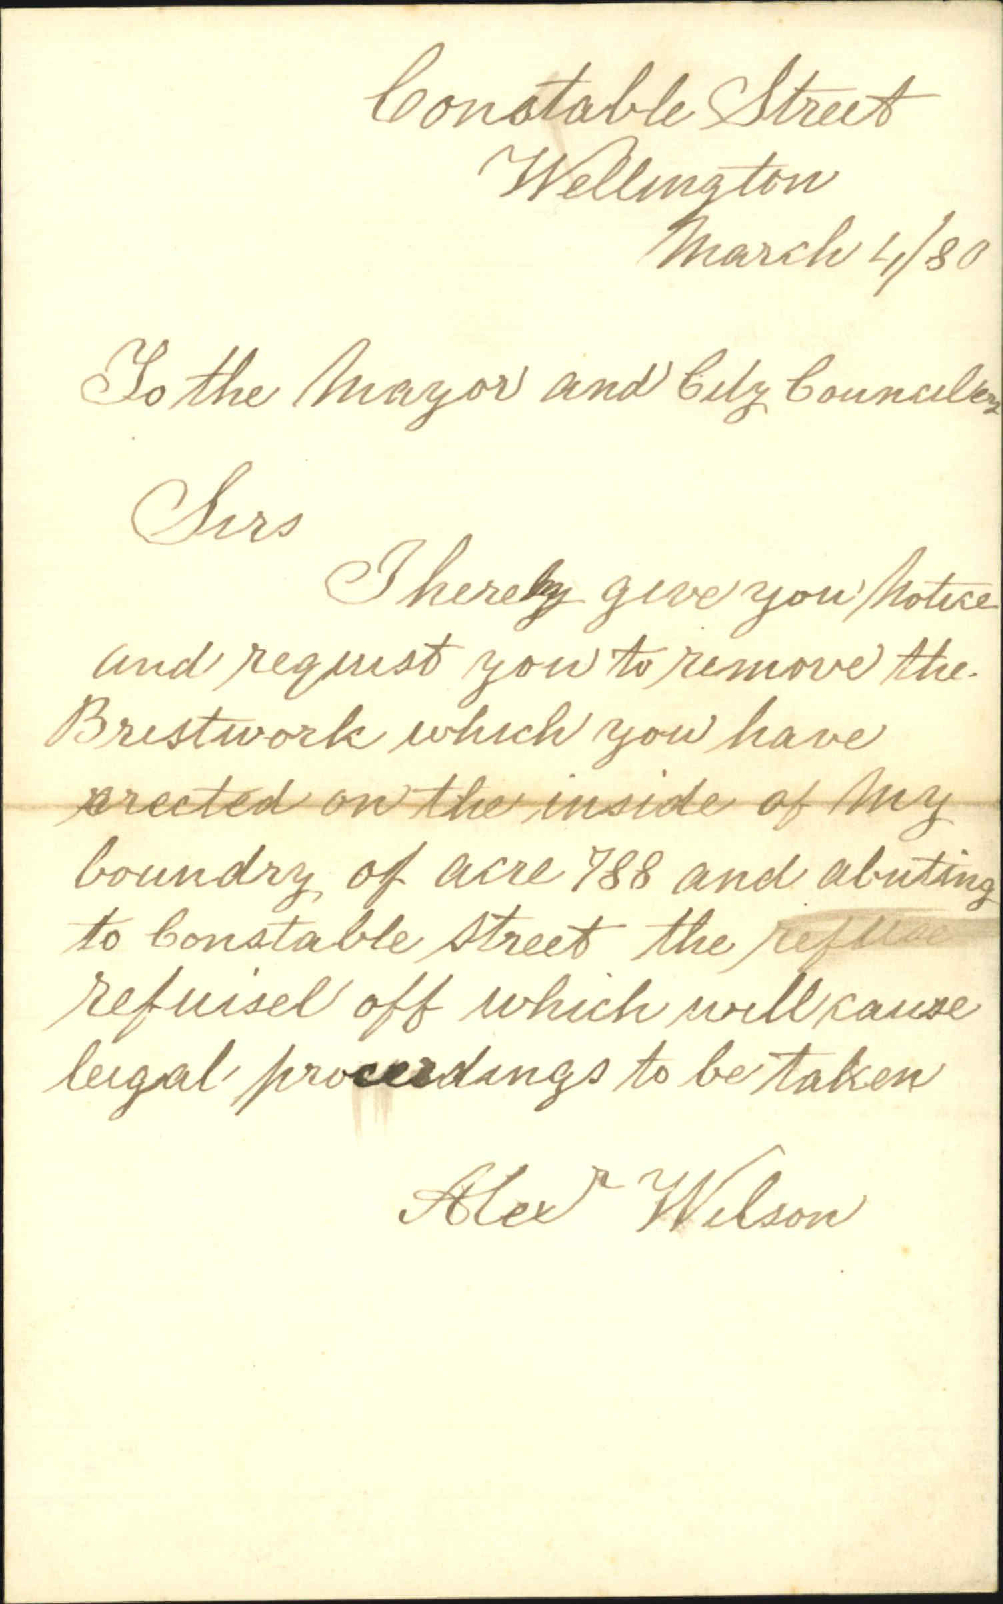 Constable Street
Wellington
March 4/80
To the Mayor and City Councilers
Sirs
I hereby give you Notice
and request you to remove the
Brestwork which you have
erected on the inside of My
boundry of acre 788 and abuting
to Constable Street the refuse
refuisel off which will cause
leigal proceedings to be taken
Alexr Wilson